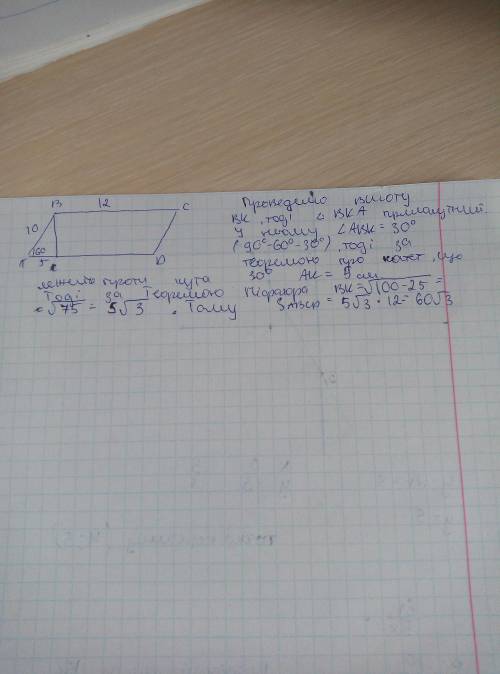 B 12 C
10
60°
5 K D
Проведемо висоту
BK, тоді ∠ BKA прямокутний.
У ньому ∠ABK = 30°
(90°-60°-30°), тоді за
теоремою про катет, що
лежить проти кута 30° AK = 5 см
Тоді за Теоремою Піфагора BK = √100-25 =
= √75 = 5√3. Тому Sпаср = 5√3 · 12 = 60√3